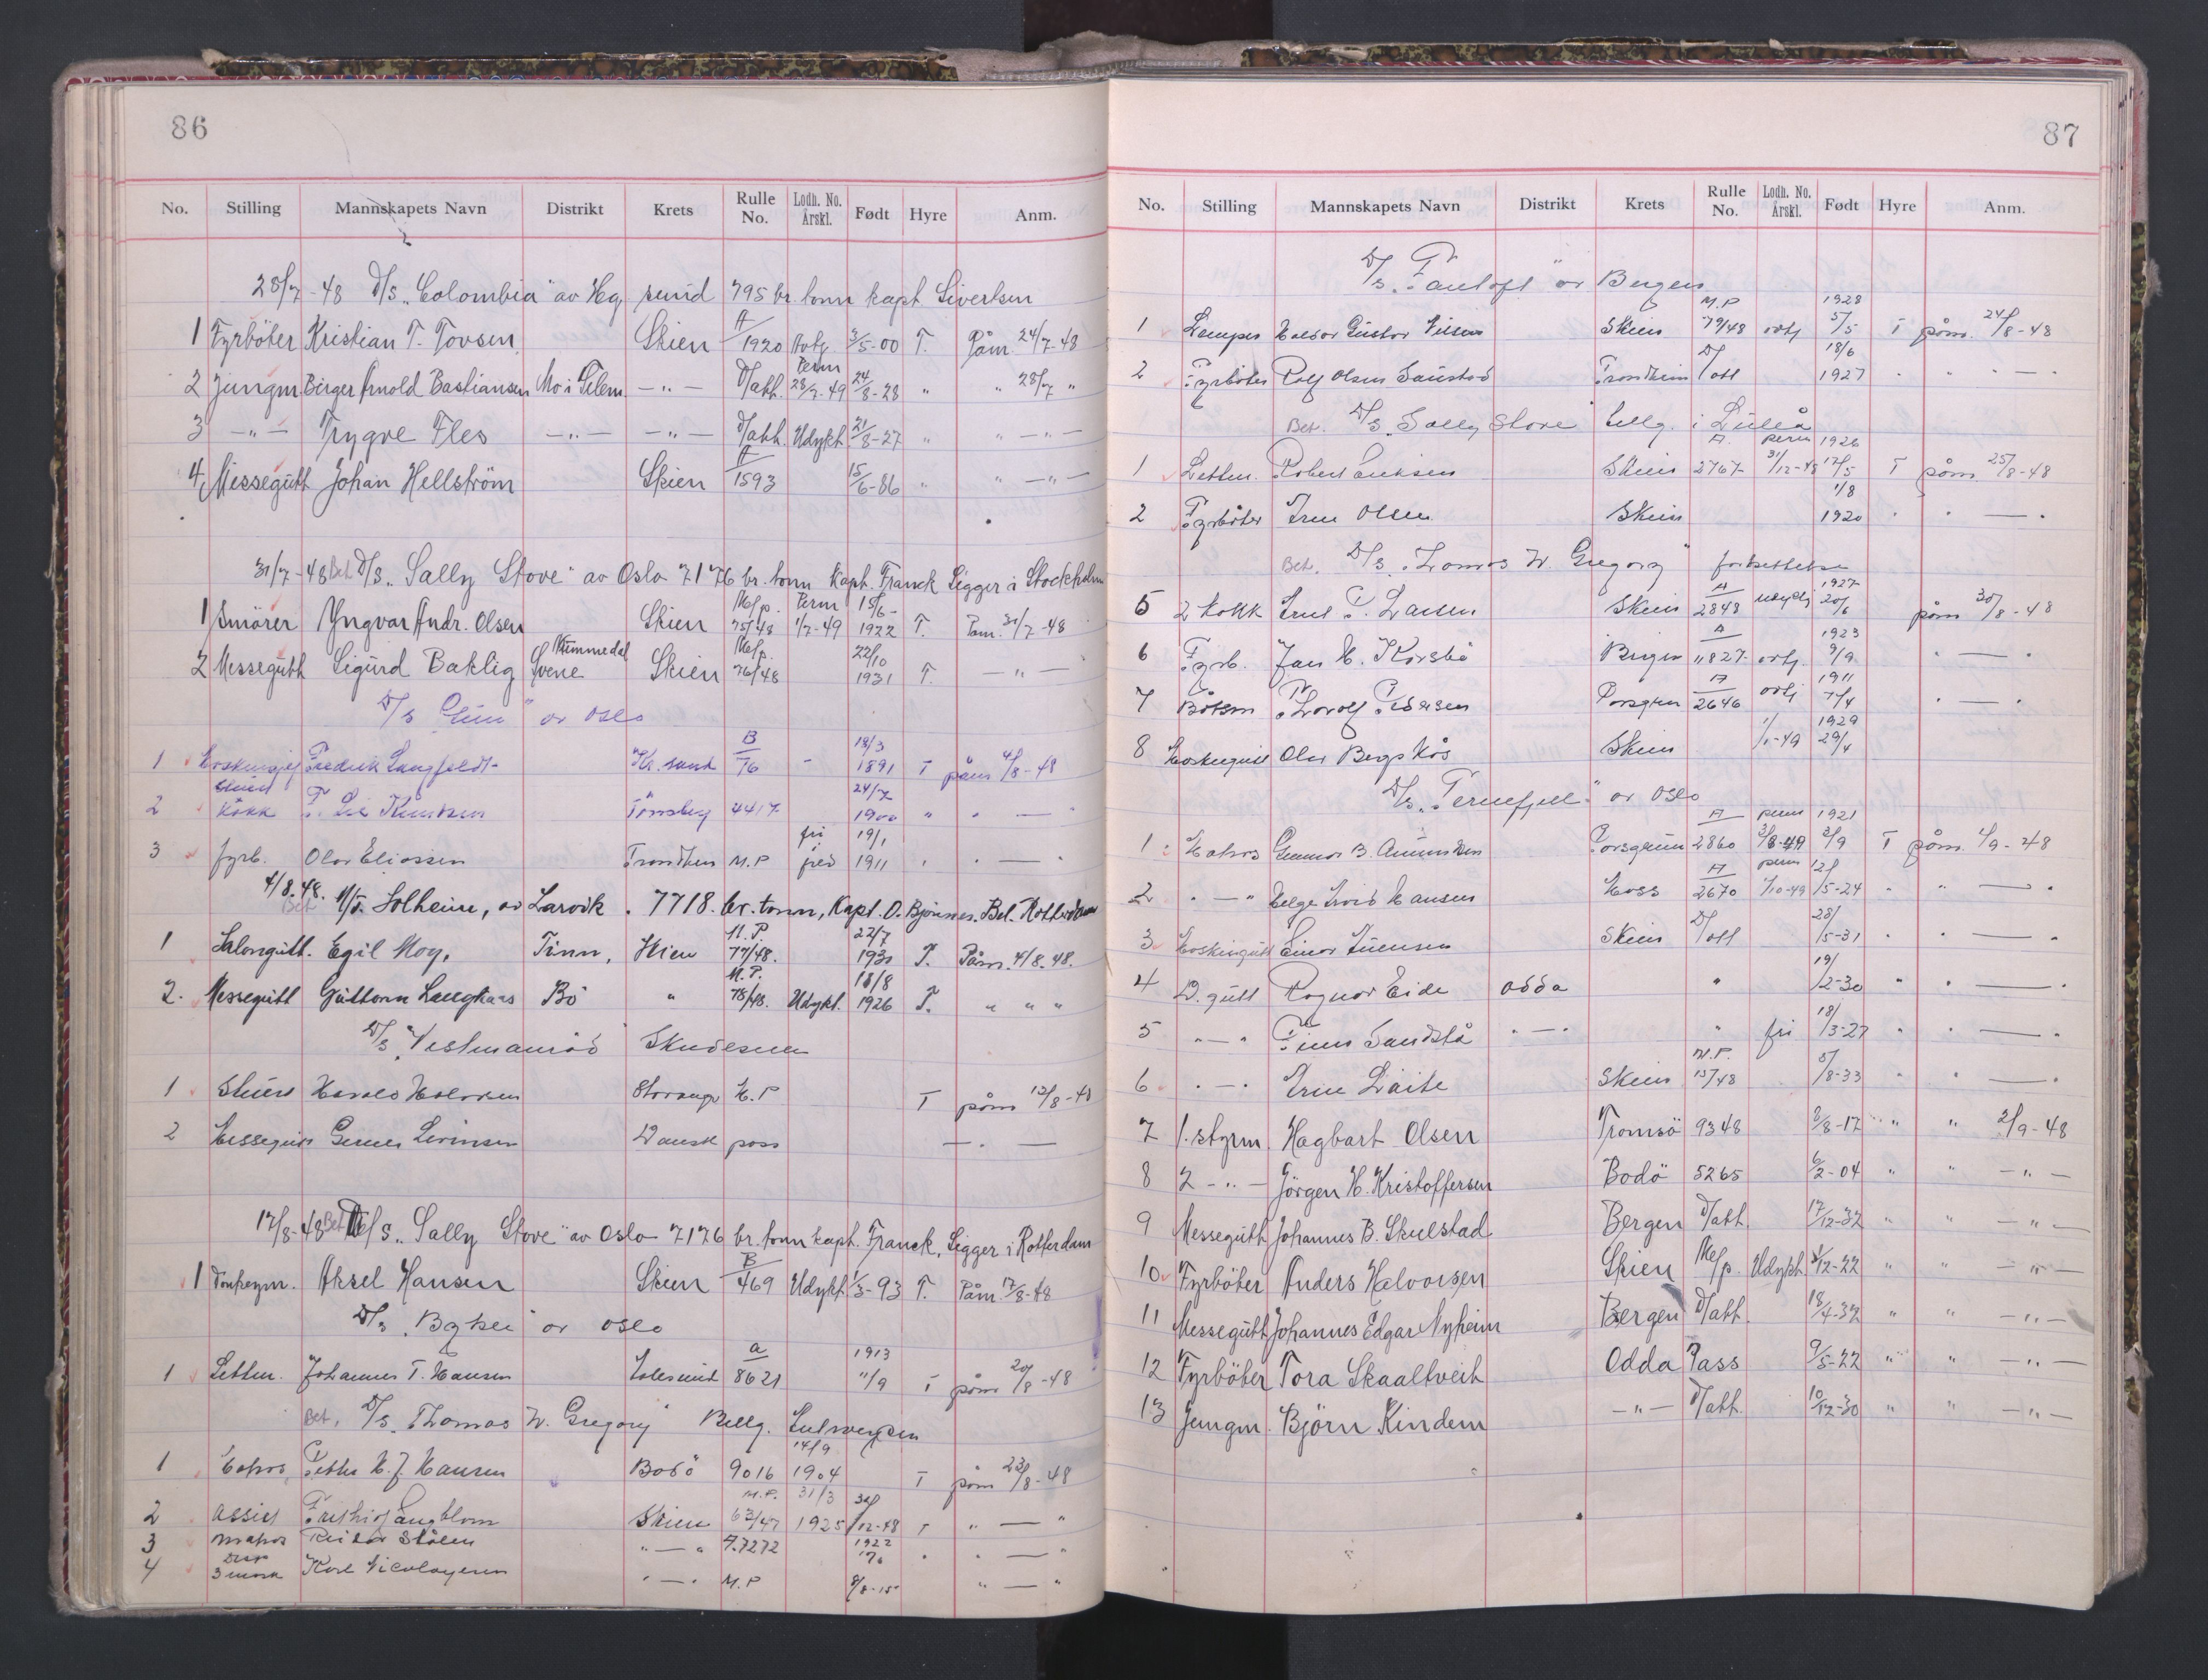 86
No. Stilling Mannskapets Navn Distrikt Krets Rulle No. Lodh. No. Årskl. Født Hyre Anm.
28/7-48 D/S „Colombia" av Hg.sund 795 br. tonn kapt. Sivertsen
1 Fyrböter Kristian T. Tovsen Skien A/1920 Avtj. 3/5-00 T. Påm. 24/7-48
2 Jungm. Birger Arnold Bastiansen Mo i Telem. -"- D/att. Perm 28/7-49 24/8-28 " " 28/7 "
3 -"- Trygve Fles -"- -"- D/att. Udykt. 21/8-27 " " -"-
4 Messegutt Johan Hellström Skien A/1593 15/6-86 " " -"-
31/7-48 Bet. D/S „Sally Stove" av Oslo 7176 br. tonn Kapt. Franck Ligger i Stockholm
1 Smörer Yngvar Andr. Olsen Skien M/p. 75/48 Perm 1/7-49 15/6-1922 T. Påm. 31/7-48
2 Messegutt Sigurd Baklig Svene Nummedal Skien M/p. 76/48 22/10 1931 T. -"-
D/S „Gun" av Oslo
1 Fredrik Langfeldt Kr.sand B/76 - 18/3 1891 T påm 4/8-48
2 Stuert Kokk Tönsberg 4417 24/7 1900 " " —
3 fyrb. Olav Eliassen Trondhem M.P fri fred 19/1 1911 " " —
4/8.48. Bet M/T. Solheim, av Larvik. 7718. br. tonn, Kapt. O. Bjönnes. Bet. Rotterdam
1 Salongutt. Egil Moy, Tinn, Skien M.P 77/48. 22/7 1930 T. Påm. 4/8.48.
2. Messegutt Guttorm Langkaas Bö " M.P. 78/48. Udykt. 18/8 1926 T. " " "
D/S „Vestmanröd Skudesnes
1 Stuert Harald Halvorsen Stavanger M.P T påm 13/8-48
2 Messegutt Dansk pass — " —
17/8-48 Bet. D/S „Sally Stove" av Oslo 7176 br. tonn kapt. Franck, Ligger i Rotterdam
1 Donkeym. Aksel Hansen Skien B/469 Udykt 1/3-93 T. Påm. 17/8-48
D/S „ " av Oslo
1 Lettm. Johannes T. Hansen Aalesund A/8621 1913 11/9 T påm 20/8-48
Bet. D/S. Thomas W. Gregory Bellg. Antwerpen
1 Matros Petter M. J. Hansen Bodö 9016 14/9 1904 T påm 23/8-48
2 assist Frithiof Langblom Skien M.P. 63/47 31/3 1925 31/12-48 T " — "
3 matros Reidar Stålen " — " A.7272 1922 " — "
4 Karl Nicolaysen " — " M.P 8/8-15 " — "
87
No. Stilling Mannskapets Navn Distrikt Krets Rulle No. Lodh. No. Årskl. Født Hyre Anm.
D/S. „Fantoft" av Bergen
1 Lemper Halvor Gustav Nilsen Skien M.P 79/48 avtj 1928 5/5 T påm. 24/8-48
2 Fyrböter Rolf Olsen Trondheim D/att 18/6 1927 " " — "
Bet. D/S. Sally Stove bellg. i Luleå
1 Lettm. Robert Eriksen Skien A. 2767 perm 31/12-48 1926 17/5 T påm. 25/8-48
2 Fyrböter Arne Olsen Skien 1/8 1920 " " — "
Bet. D/S. „Thomas W. Gregory" fortsettelse
5 2 Kokk Arne P. Larsen Skien A/2848 Udyktj 1927 20/6 påm 30/8-48
6 Fyrb. Jan H. Korsbö Bergen A/11827 avtj. 1923 9/9 " — "
7 Båtsm Thorolf Pedersen Porsgrun A/2646 avtj 1911 7/4 " — "
8 Maskingutt Olav Bergskås Skien 1/1-49 1929 29/4
D/S. „Ternefjell" av Oslo
1 Matros Gunnar B. Amundsen Porsgrunn A/2860 perm 3/8-49 1921 3/9 T påm. 1/9-48
2 " — " Helge Arvid Hansen Moss A/2670 perm 1/10-49 12/5-24 " " — "
3 Maskingutt Einar Skien D/att 28/5-31 " " — "
4 D. gutt Ragnar Eide Odda " 19/2-30 " " — "
5 " — " Finn Sandstå " — " " fri 18/3-27 " " — "
6 " — " Arne Låite Skien M.P. 15/48 5/8-33 " " — "
7 1. styrm. Hagbart Olsen Tromsö 9348 8/8-17 " " 2/9-48
8 2 -"- Jörgen H. Kristoffersen Bodö 5265 6/2-04 " " -"-
9 Messegutt Johannes B. Skulstad Bergen D/att. 17/12-32 " " -"-
10 Fyrböter Anders Halvorsen Skien M/p. Udykt. 3/12-22 " " -"-
11 Messegutt Johannes Edgar Nyheim Bergen D/att. 18/4-32 " " -"-
12 Fyrböter Tora Skaaltveit Odda Pass 9/5-22 " " -"-
13 Jungm. Björn Kindem -"- D/att. 10/12-30 " " -"-